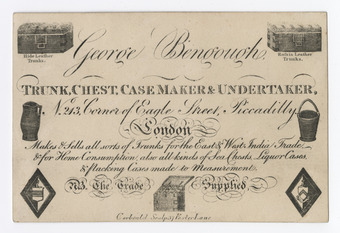 George Bengough.
Hide Leather
Trunks.
Russia Leather
Trunks.
TRUNK, CHEST, CASE MAKER & UNDERTAKER,
No. 213, Corner of Eagle Street, Piccadilly
London
Makes & Sells all sorts of Trunks for the East & West India Trade
& for Home Consumption, also all kinds of Sea Chests, Liquor Cases,
& Packing Cases made to Measurement.
NB. The Trade Supplied